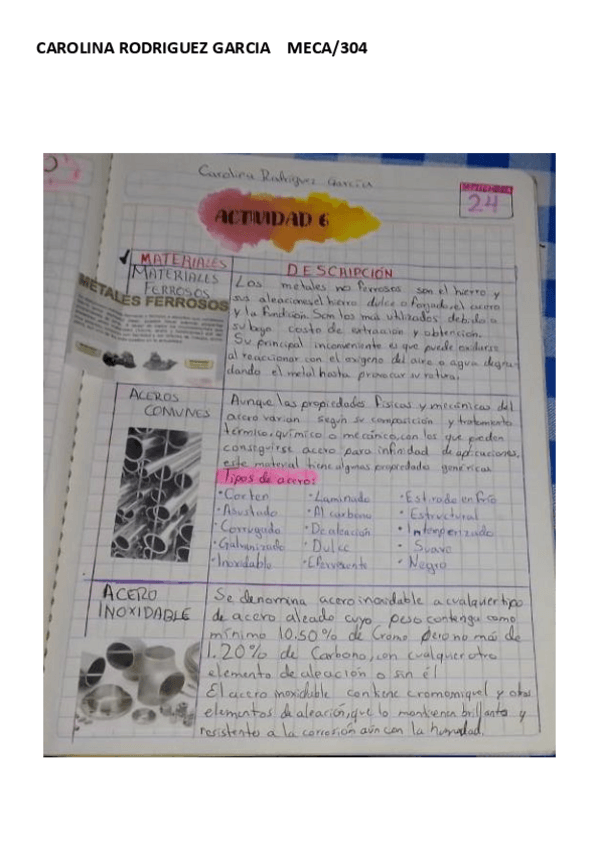 CAROLINA RODRIGUEZ GARCIA MECA/304
Carolina Rodriguez Garcia
SEPTIEMBRE
24
ACTIVIDAD 6
MATERIALES
DESCRIPCIÓN
MATERIALES
FERROSOS
METALES FERROSOS
Los metales no ferrosos son el hierro y
sus aleaciones, el hierro dulce o forjado, el acero
y la fundición. Son los más utilizados debido a
su bajo costo de extracción y obtención.
Su principal inconveniente es que puede oxidarse
al reaccionar con el oxigeno del aire o agua degra-
dando el metal hasta provocar su rotura.
ACEROS
COMUNES
Aunque las propiedades físicas y mecánicas del
acero varian según su composición y tratamiento
térmico, químico o mecánico, con los que pueden
conseguirse acero para infinidad de aplicaciones,
este material tiene algunas propiedades genéricas
Tipos de acero:
• Corten • Laminado • Estirado en frío
• Al carbono • Estructural
• Corrugado • De aleación • Intemperizado
• Galvanizado • Dulce • Suave
• Inoxidable • Efervescente • Negro
ACERO
INOXIDABLE
Se denomina acero inoxidable a cualquier tipo
de acero aleado cuyo peso contenga como
mínimo 10.50% de Cromo pero no más de
1.20% de Carbono, con cualquier otro
elemento de aleación o sin él
El acero inoxidable contiene cromo níquel y otros
elementos de aleación, que lo mantienen brillante y
resistente a la corrosión aún con la humedad.